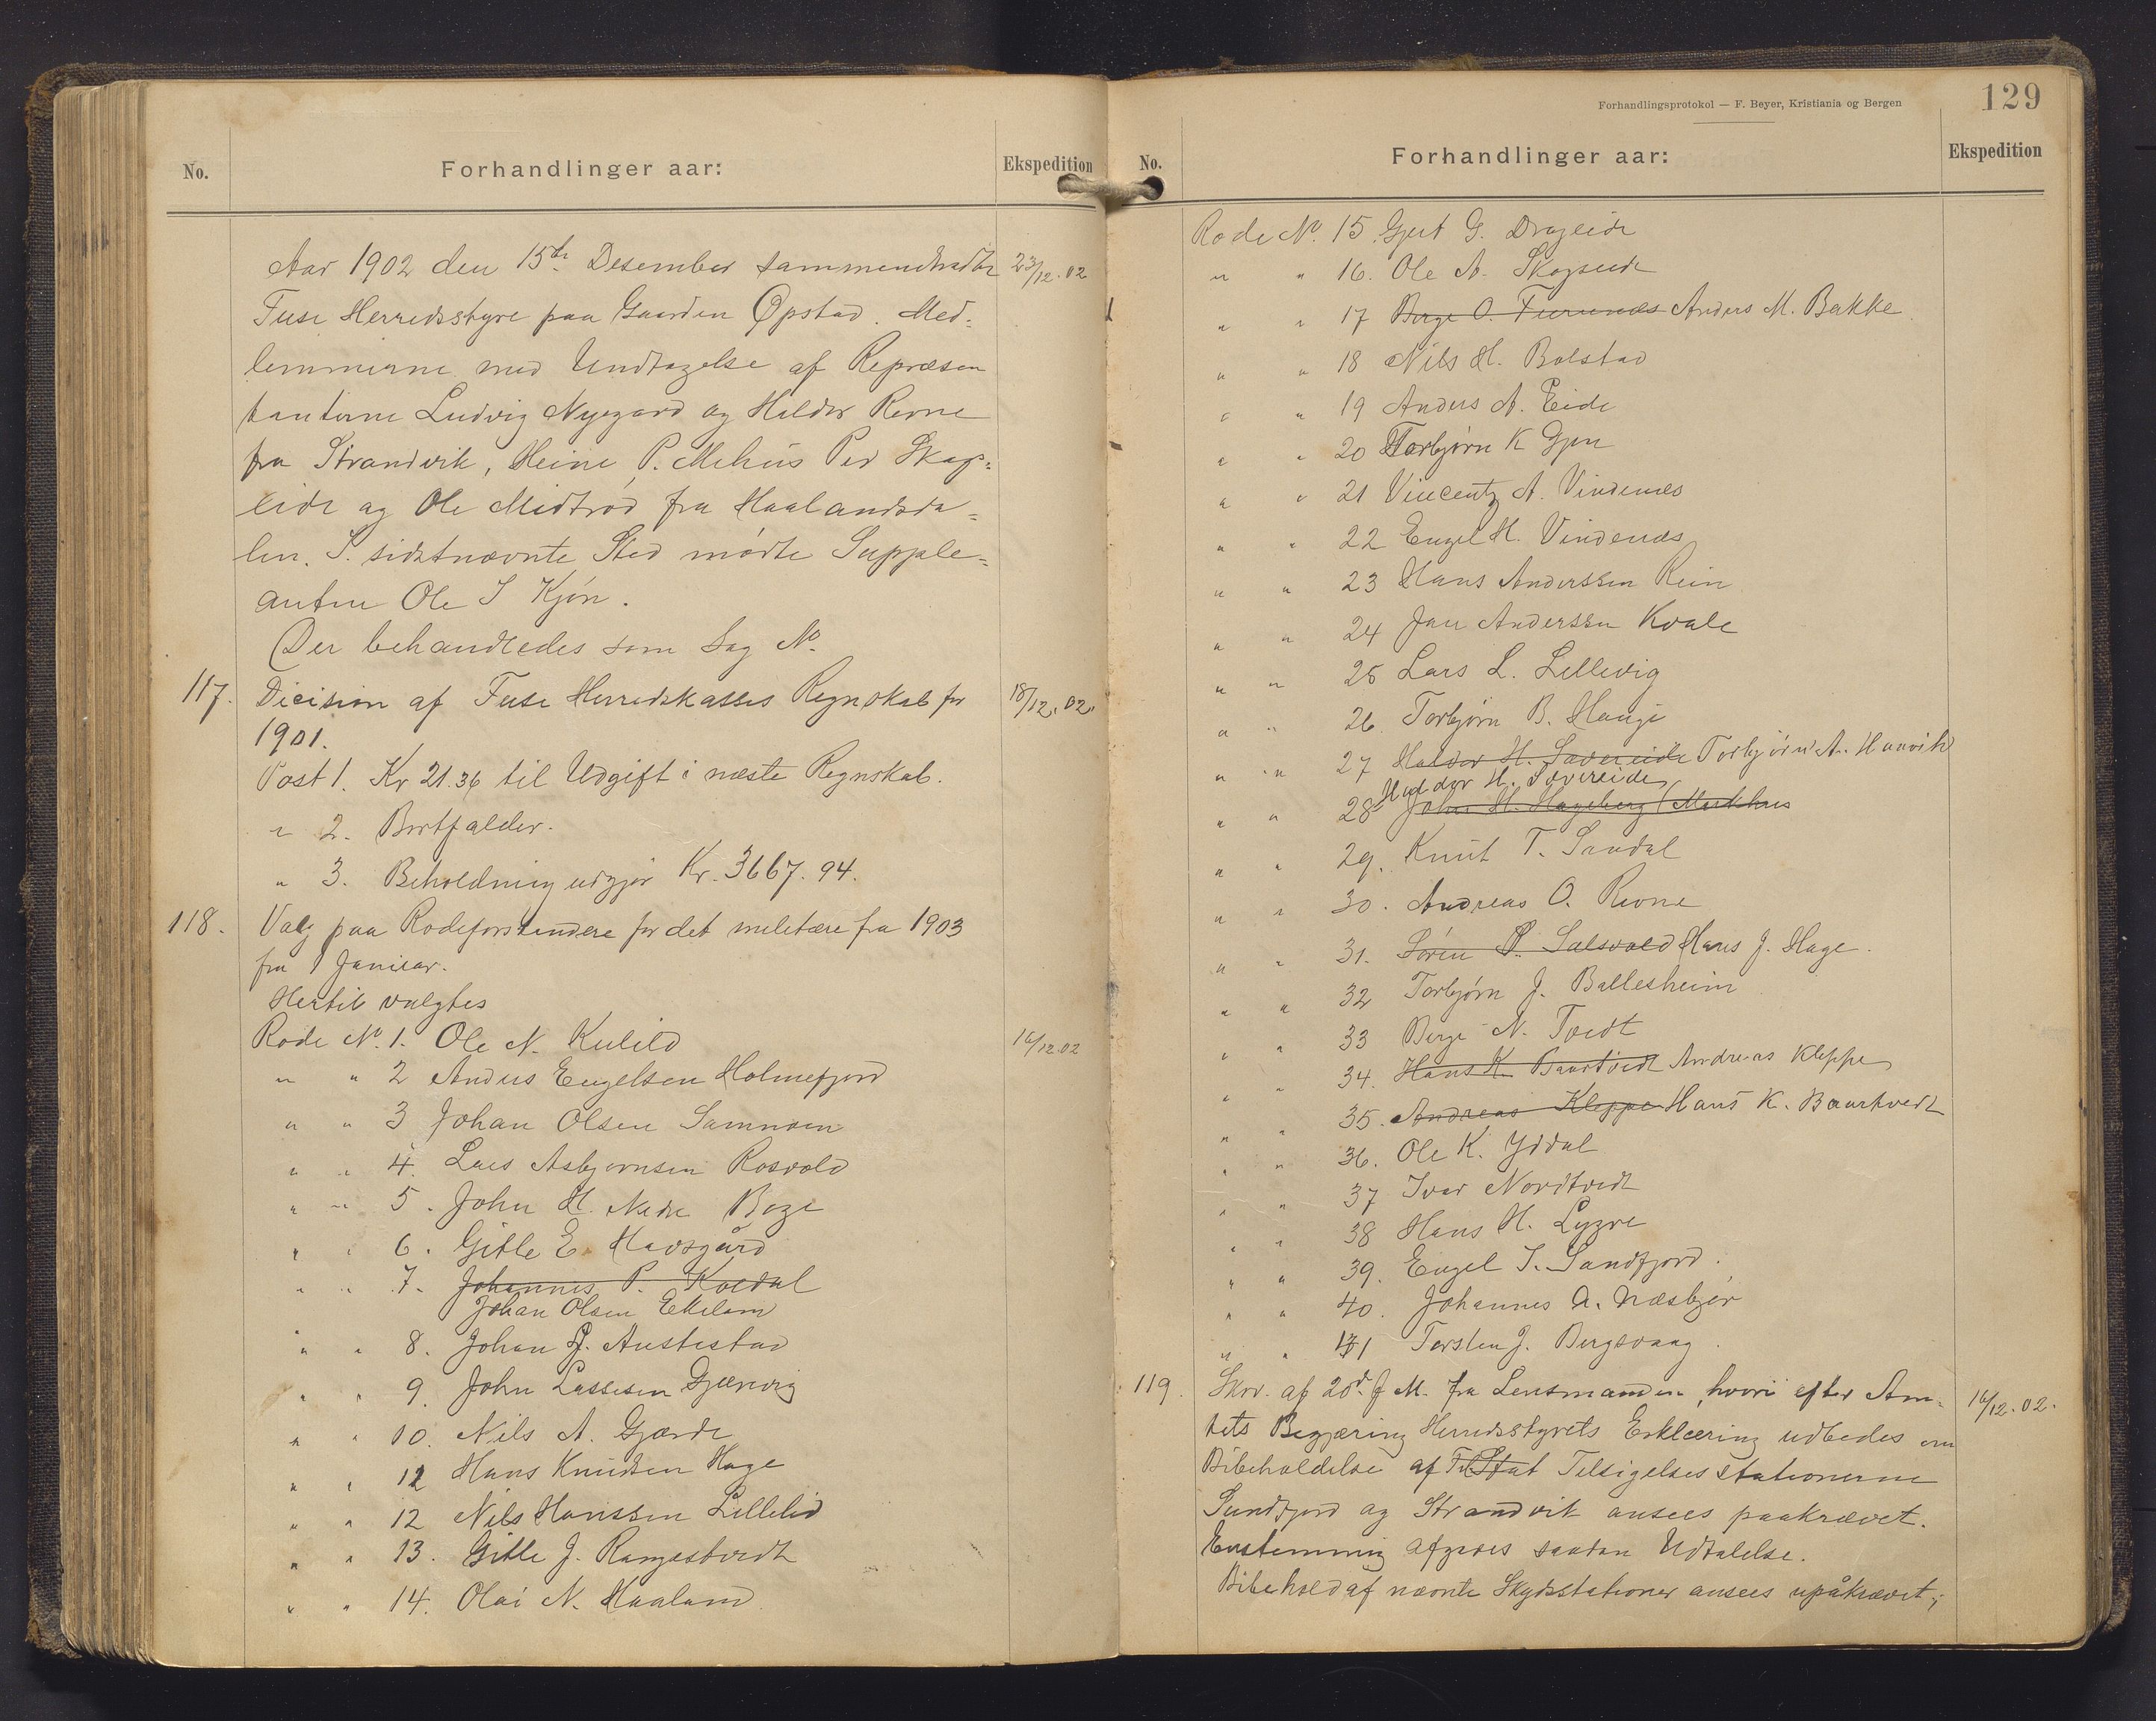 No.
Forhandlinger aar:
Ekspedition
Aar 1902 den 15de Desember sammentraadte 23/12.02
Fuse Herredsstyre paa Gaarden Øpstad. Med-
lemmerne med Undtagelse af Repræsen
tanterne Ludvig Nygaard og Haldor Revne
fra Strandvik, Heine P. Mehus Per Skogs-
eide og Ole Midtrød fra Haalandsda-
len. I sidstnævnte Sted mødte Supple-
anten Ole I Kjøn.
Der behandledes som Sag No
117. Dicision af Fuse Herredskasses Regnskab for 18/12.02.
1901.
Post 1. Kr 21.36 til Udgift i næste Regnskab.
" 2. Bortfalder.
" 3. Beholdning udgjør Kr. 3667.94.
118. Valg paa Rodeforstandere for det militære fra 1903
fra 1 Januar.
Hertil valgtes
Rode No. 1. Ole N. Kulild 16/12.02
" " 2 Anders Engelsen Holmefjord
" " 3 Johan Olsen Samnøen
" " 4. Lars Asbjørnsen Rosvold
" " 5. John H. Nedre Boge
" " 6. Gitle E. Havsgård
" " 7. Johannes P. Koldal
Johan Olsen Ekeland
" " 8. Johan J. Austestad
" " 9. John Lassesen Gjønvig
" " 10. Nils A. Gjærde
" " 11 Hans Knudsen Hage
" " 12 Nils Hanssen Lillelid
" " 13. Gitle J. Rangastvedt
" " 14. Olai N. Haaland
Forhandlingsprotokol — F. Beyer, Kristiania og Bergen
129
No.
Forhandlinger aar:
Ekspedition
Rode No. 15. Gjert G. Drageide
" " 16. Ole A. Skogseide
" " 17 Berge O. Furunæs Anders M. Bakke
" " 18 Nils H. Bolstad
" " 19 Anders A. Eide
" " 20 Torbjørn K Gjøn
" " 21 Vincentz A. Vindenæs
" " 22 Engel H. Vindenæs
" " 23 Hans Anderssen Rein
" " 24 Jan Anderssen Kvale
" " 25 Lars L. Lillevig
" " 26 Torbjørn B. Haugi
" " 27 Haldor H. Sævereide Torbjørn A. Hanvik
Haldor H. Sævereide
" " 28 Johan H. Hageberg (Markhus
" " 29. Knut T. Sandal
" " 30. Andreas O. Revne
" " 31. Søren P. Solsvold Hans J. Hage.
" " 32 Torbjørn J. Ballesheim
" " 33 Berge N. Tvedt
" " 34. Hans K. Baartvedt Andreas Kleppe
" " 35. Andreas Kleppe Hans K. Baartvedt
" " 36. Ole K. Yddal
" " 37 Ivar Nordtvedt
" " 38 Hans H. Lygre
" " 39. Engel I. Sundfjord.
" " 40. Johannes A. Næsbjør
" " 41 Torsten J. Bergsvaag.
119. Skriv. af 20de f M. fra Lensmanden, hvori efter Am- 16/12.02.
tets Begjæring Herredsstyrets Erklæring udbedes om
Bibeholdelse af Tilstat Tilsigelses stationerne
Sundfjord og Strandvik ansees paakrævet.
Enstemmig afgaves saadan Udtalelse.
Bibehold af nævnte Skydsstationer ansees upåkrævet;